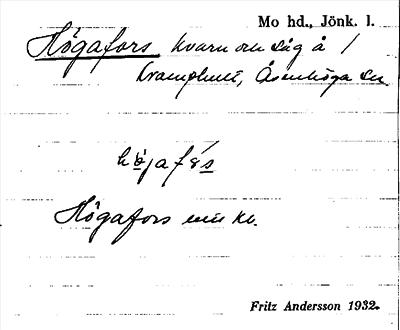 Mo hd., Jönk. l.
Högafors kvarn och såg å /
Kramphult, Åsenhöga sn
Högafors
Fritz Andersson 1932.